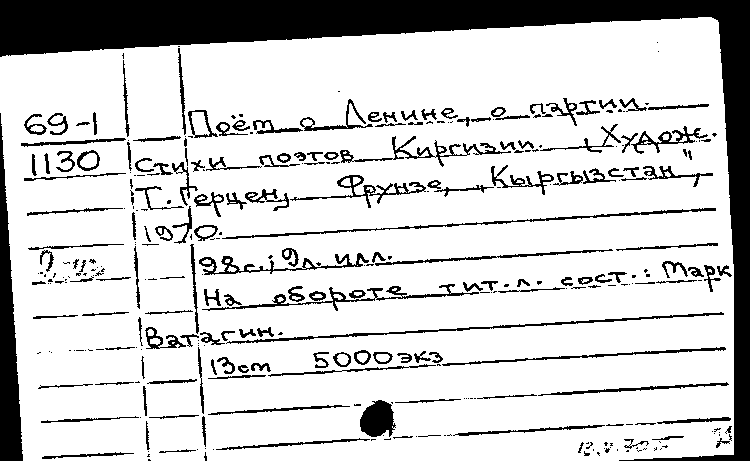 69-1 Поём о Ленине, о партии.
1130 Стихи поэтов Киргизии. [Худож.
Т. Герцен] Фрунзе, „Кыргызстан",
1970.
98с.; 9л. илл.
На обороте тит.л. сост.: Марк
Ватагин.
13см 5000экз